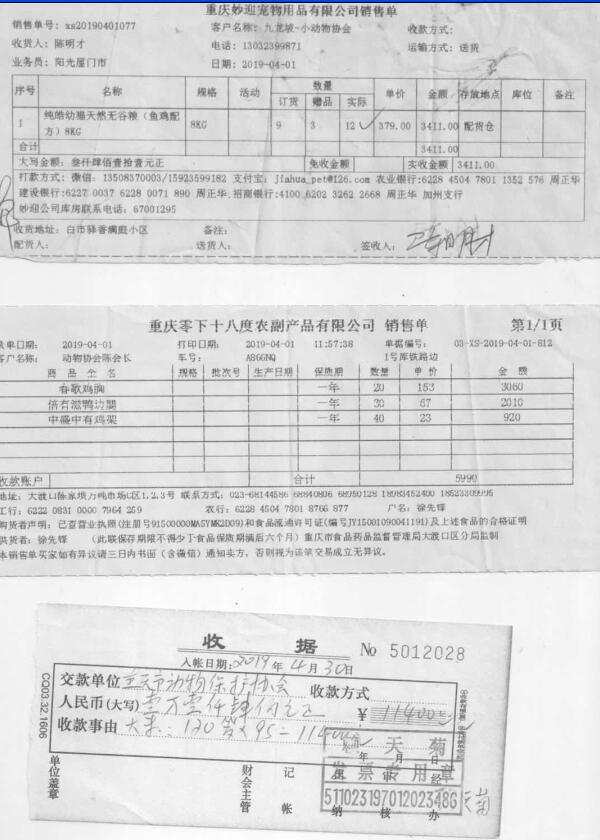 重庆妙迎宠物用品有限公司销售单
销售单号: xs20190401077 客户名称: 九龙坡-小动物协会 收款方式:
收货人: 陈明才 电话: 13032399871 运输方式: 送货
业务员: 阳光厦门市 日期: 2019-04-01
序号 名称 规格 活动 数量 单价 金额 存放地点 库位 备注
订货 赠品 实际
1 纯皓幼猫天然无谷粮（鱼鸡配方）8KG 8KG 9 3 12 379.00 3411.00 配货仓
合计 3411.00
大写金额: 叁仟肆佰壹拾壹元正 免收金额 实收金额 3411.00
打款方式: 微信: 13508370003/15923599182 支付宝: jiahua_pet@126.com 农业银行:6228 4504 7801 1352 576 周正华
建设银行:6227 0037 6228 0071 890 周正华 招商银行:4100 6202 3262 2668 周正华 加州支行
妙迎公司库房联系电话: 67001295
收货地址: 白市驿香澜庭小区 备注:
配货人: 送货人: 签收人:
重庆零下十八度农副产品有限公司 销售单 第1/1页
录单日期: 2019-04-01 打印日期: 2019-04-01 11:57:38 单据编号: 03-XS-2019-04-01-812
客户名称: 动物协会陈会长 车号: A866NQ 1号库铁路边
商品全名 规格 批次号 生产日期 保质期 数量 单价 金额
春歌鸡胸 一年 20 153 3060
倍有滋鸭边腿 一年 30 67 2010
中盛中有鸡架 一年 40 23 920
收款账户 合计 5990
地址: 大渡口陈家坝万吨市场C区1.2.3号 联系方式: 023-68144586 68840806 68950128 18983452400 18523309995
工行: 6222 0831 0000 7964 259 农行: 6228 4504 7801 8766 877 户名: 徐先锋
购货者声明: 已查营业执照(注册号91500000MA5YMK2D09)和食品流通许可证(编号JY15001090041191)及上述食品的合格证明
供货者: 徐先锋 (此联保存期限不得少于食品保质期满后六个月) 重庆市食品药品监督管理局大渡口区分局监制
本销售单买家如有异议请三日内书面(含微信)通知卖方, 否则视为该笔交易成立无异议。
收 据 No 5012028
入帐日期: 2019 年 4 月 30 日
交款单位 动物保护协会 收款方式
人民币(大写) 壹万壹仟肆佰元正 ¥ 11400
收款事由 大米: 120袋×95=11400
天 菊
年 月 日
发票专用章
511023197012023486
单位盖章 财会主管 记帐 出纳 审核 经办
CQ03.32.1606